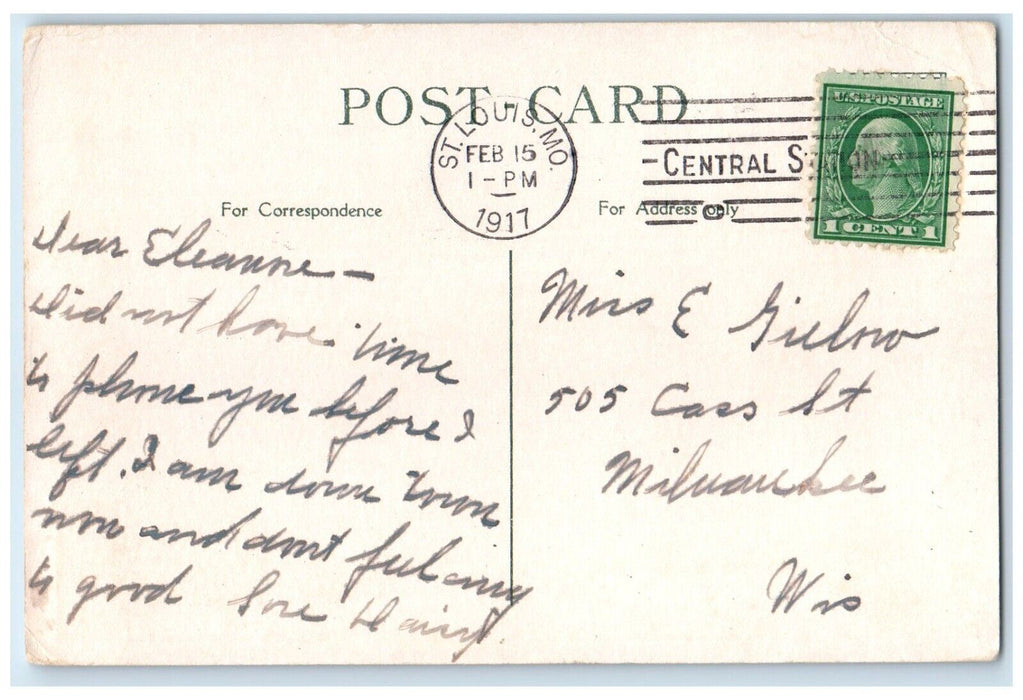 POST CARD
ST. LOUIS, MO.
FEB 15
1-PM
1917
CENTRAL STATION
U.S. POSTAGE
1 CENT 1
For Correspondence
For Address only
Dear Eleanore —
Did not have time
to phone you before I
left. I am down town
now and dont feel any
to good Love
Miss E Gielow
505 Cass St
Milwaukee
Wis